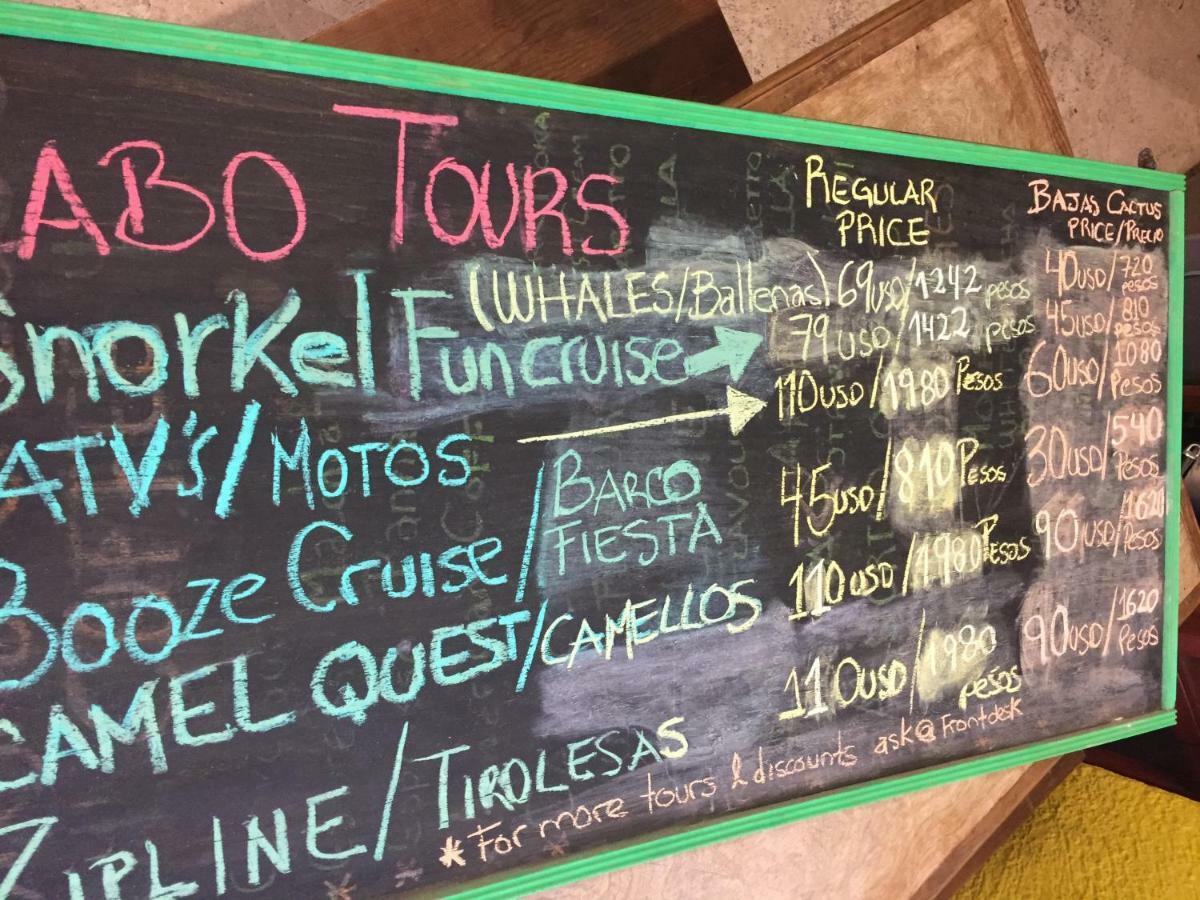 ABO TOURS
REGULAR PRICE
BAJAS CACTUS PRICE/PRECIO
(WHALES/Ballenas) 69USD/1242 pesos 40USD/720 pesos
Snorkel Fun cruise 79USD/1422 pesos 45USD/810 pesos
ATV's/MOTOS 110USD/1980 Pesos 60USD/1080 Pesos
Booze Cruise/BARCO FIESTA 45USD/810 Pesos 30USD/540 Pesos
CAMEL QUEST/CAMELLOS 110USD/1980 Pesos 90USD/1620 Pesos
ZIPLINE/TIROLESAS 110USD/1980 pesos 90USD/1620 Pesos
*For more tours & discounts ask@ Frontdesk